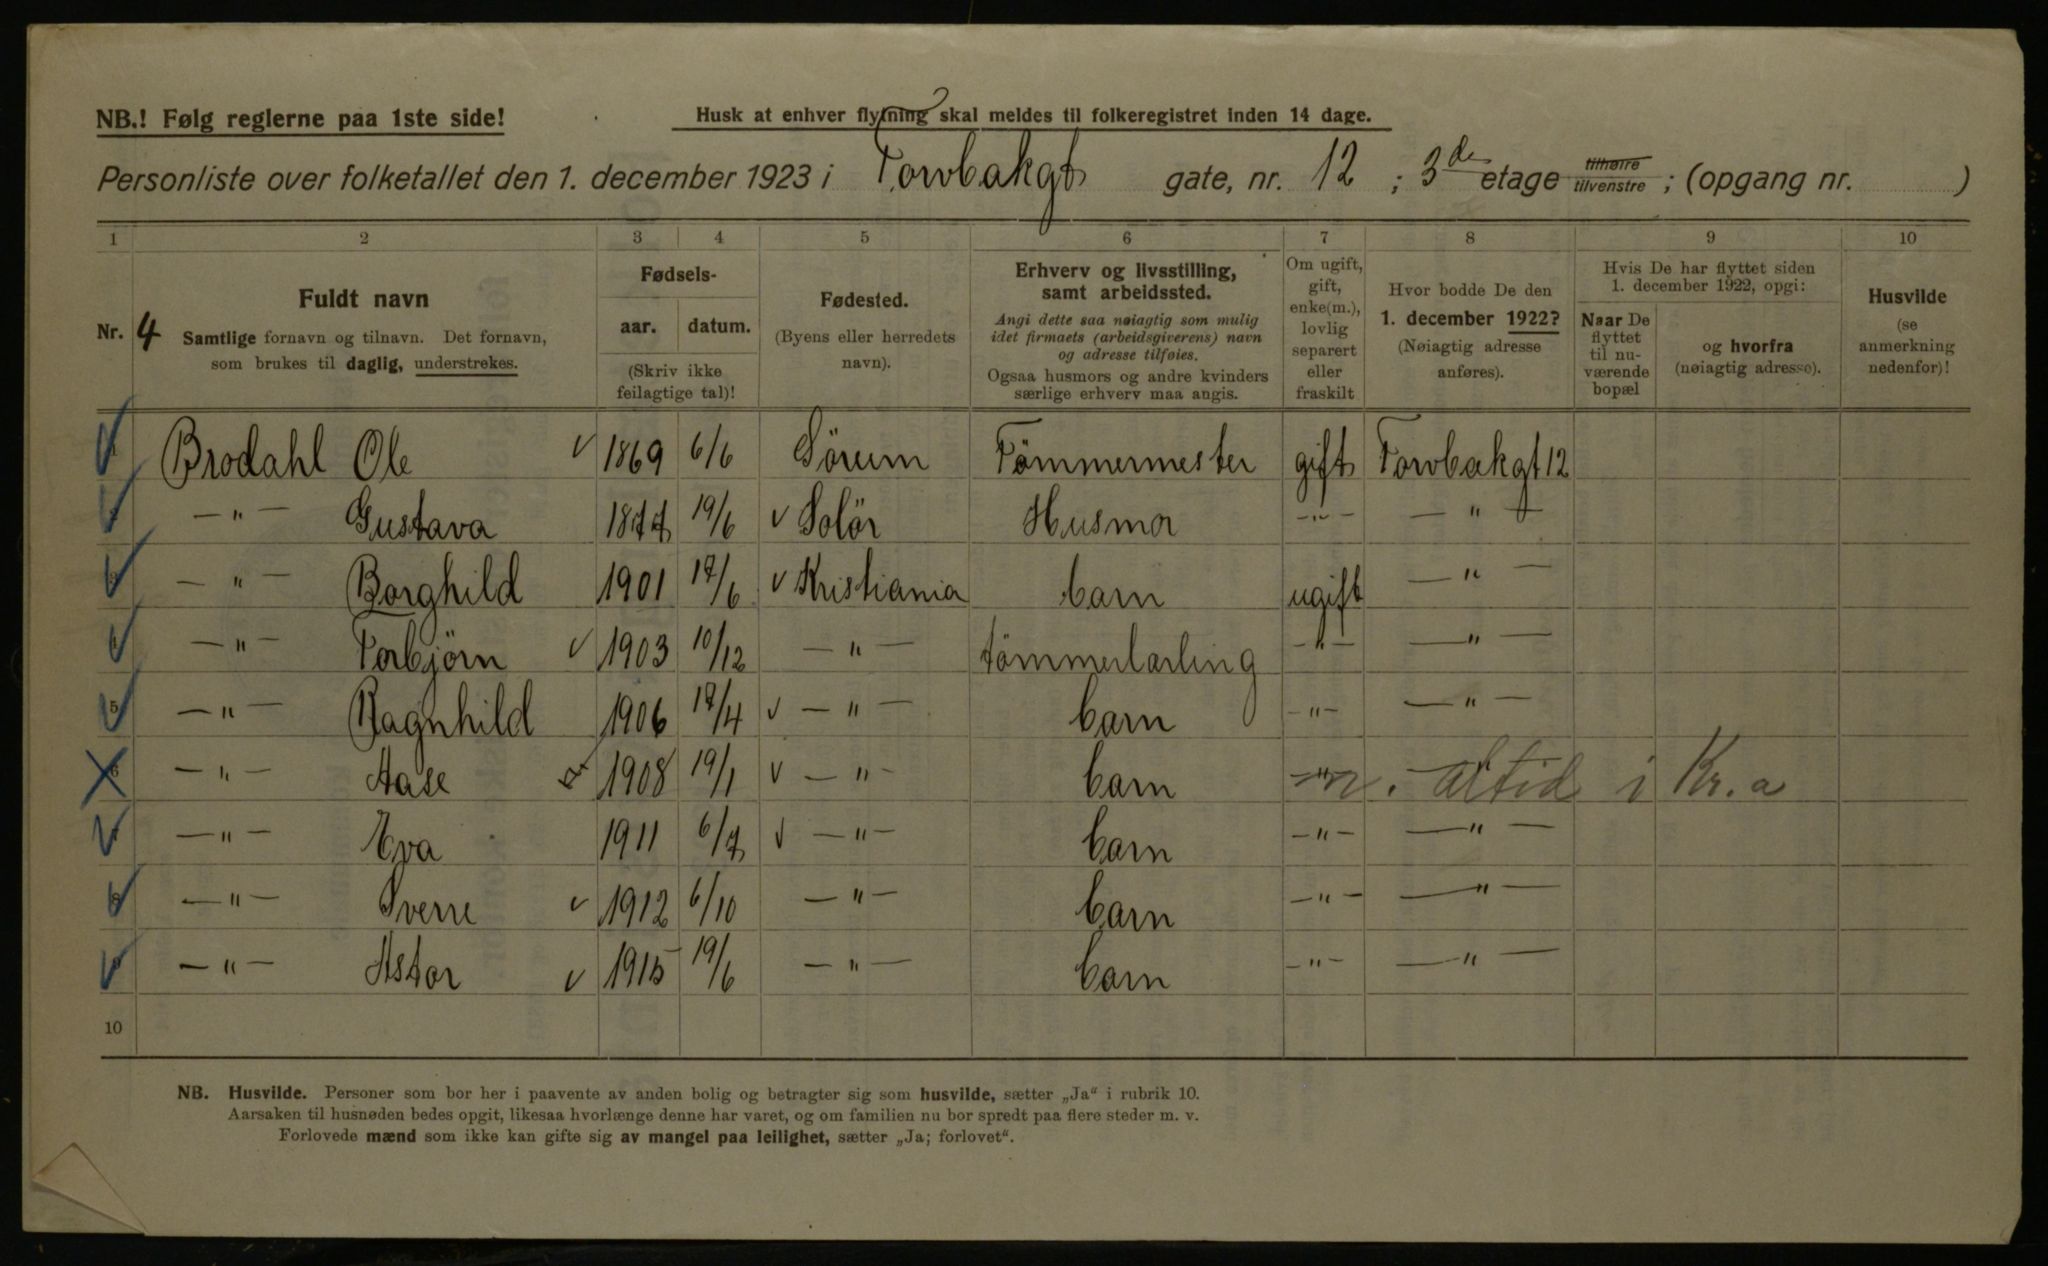 NB.! Følg reglerne paa 1ste side!
Husk at enhver flytning skal meldes til folkeregistret inden 14 dage.
Personliste over folketallet den 1. december 1923 i Torvbakgt gate, nr. 12 ; 3de etage tilhøire tilvenstre ; (opgang nr. )
1 2 3 4 5 6 7 8 9 10
Nr. 4
Fuldt navn
Samtlige fornavn og tilnavn. Det fornavn,
som brukes til daglig, understrekes.
Fødsels-
aar. datum.
(Skriv ikke
feilagtige tal)!
Fødested.
(Byens eller herredets
navn).
Erhverv og livsstilling,
samt arbeidssted.
Angi dette saa nøiagtig som mulig
idet firmaets (arbeidsgiverens) navn
og adresse tilføies.
Ogsaa husmors og andre kvinders
særlige erhverv maa angis.
Om ugift,
gift,
enke(m.),
lovlig
separert
eller
fraskilt
Hvor bodde De den
1. december 1922?
(Nøiagtig adresse
anføres).
Hvis De har flyttet siden
1. december 1922, opgi:
Naar De
flyttet
til nu-
værende
bopæl
og hvorfra
(nøiagtig adresse).
Husvilde
(se
anmerkning
nedenfor)!
1 Brodahl Ole v 1869 6/6 Sörum Tömmermester gift Torvbakgt 12
2 — " — Gustava 1877 19/6 v Solör Husmor — " — — " —
3 — " — Borghild 1901 17/6 v Kristiania barn ugift — " —
4 — " — Torbjörn v 1903 10/12 — " — tömmerlærling — " — — " —
5 — " — Ragnhild 1906 17/4 v — " — barn — " — — " —
6 — " — Aase 1908 19/1 v — " — barn — " — altid i Kr.a
7 — " — Eva 1911 6/7 v — " — barn — " — — " —
8 — " — Sverre v 1912 6/10 — " — barn — " — — " —
9 — " — Astor v 1915 19/6 — " — barn — " — — " —
10
NB. Husvilde. Personer som bor her i paavente av anden bolig og betragter sig som husvilde, sætter „Ja“ i rubrik 10.
Aarsaken til husnøden bedes opgit, likesaa hvorlænge denne har varet, og om familien nu bor spredt paa flere steder m. v.
Forlovede mænd som ikke kan gifte sig av mangel paa leilighet, sætter „Ja; forlovet“.